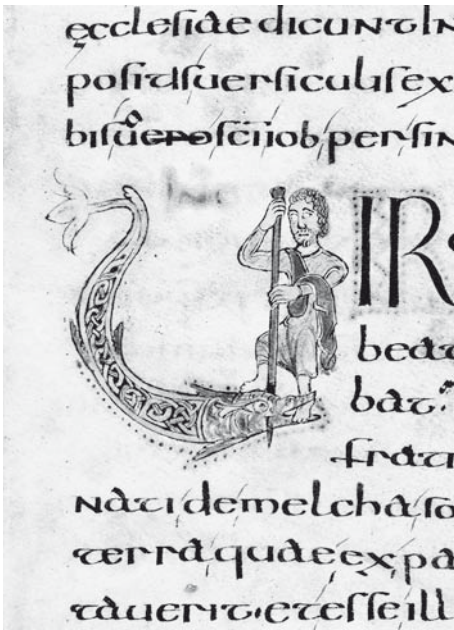 ęcclesiae dicunt In
positis uersiculis ex
bis uero scī iob, per sin
UIR
beat
bat
frat
nati de melcha so
terra quae ex pa
tauerit, et esse ill